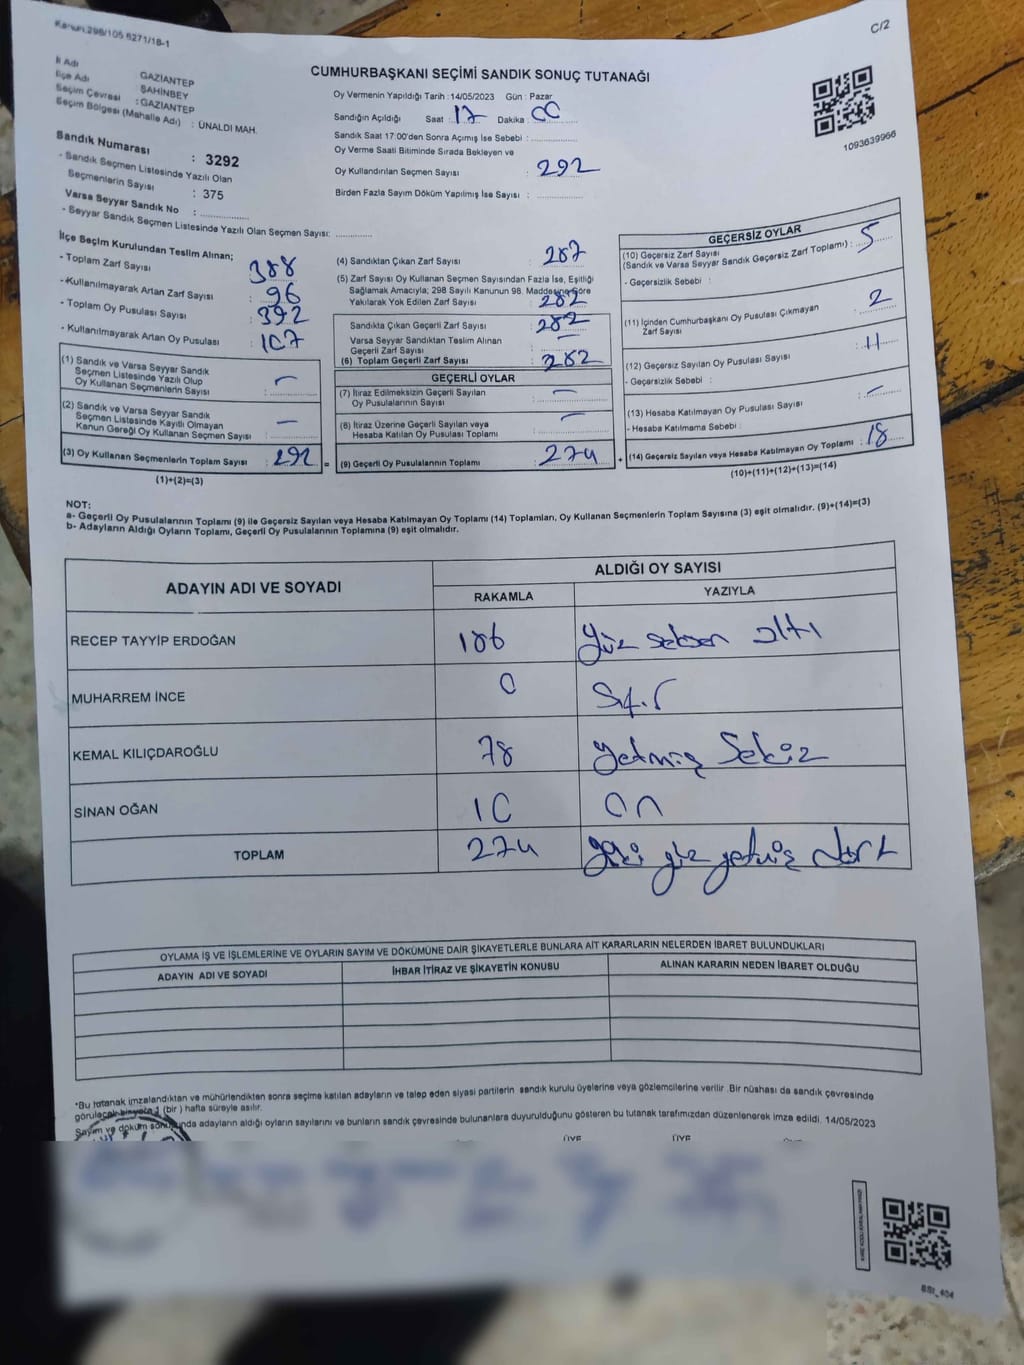 Kanun:298/105 6271/18-1
C/2
İl Adı : GAZİANTEP
İlçe Adı : ŞAHİNBEY
Seçim Çevresi : GAZİANTEP
Seçim Bölgesi (Mahalle Adı) : ÜNALDI MAH.
Sandık Numarası : 3292
- Sandık Seçmen Listesinde Yazılı Olan
Seçmenlerin Sayısı : 375
Varsa Seyyar Sandık No : ..............
- Seyyar Sandık Seçmen Listesinde Yazılı Olan Seçmen Sayısı: ..............
CUMHURBAŞKANI SEÇİMİ SANDIK SONUÇ TUTANAĞI
Oy Vermenin Yapıldığı Tarih :14/05/2023 Gün : Pazar
Sandığın Açıldığı Saat : 17 Dakika : 00
Sandık Saat 17:00'den Sonra Açımış İse Sebebi : ..............
Oy Verme Saati Bitiminde Sırada Bekleyen ve
Oy Kullandırılan Seçmen Sayısı : 292
Birden Fazla Sayım Döküm Yapılmış İse Sayısı : ..............
1093639966
İlçe Seçim Kurulundan Teslim Alınan;
- Toplam Zarf Sayısı : 388
- Kullanılmayarak Artan Zarf Sayısı : 96
- Toplam Oy Pusulası Sayısı : 392
- Kullanılmayarak Artan Oy Pusulası : 107
(1) Sandık ve Varsa Seyyar Sandık
Seçmen Listesinde Yazılı Olup
Oy Kullanan Seçmenlerin Sayısı : —
(2) Sandık ve Varsa Seyyar Sandık
Seçmen Listesinde Kayıtlı Olmayan
Kanun Gereği Oy Kullanan Seçmen Sayısı : —
(3) Oy Kullanan Seçmenlerin Toplam Sayısı : 292
(1)+(2)=(3)
(4) Sandıktan Çıkan Zarf Sayısı : 287
(5) Zarf Sayısı Oy Kullanan Seçmen Sayısından Fazla İse, Eşitliği
Sağlamak Amacıyla; 298 Sayılı Kanunun 98. Maddesine Göre
Yakılarak Yok Edilen Zarf Sayısı : 282
Sandıkta Çıkan Geçerli Zarf Sayısı : 282
Varsa Seyyar Sandıktan Teslim Alınan
Geçerli Zarf Sayısı : —
(6) Toplam Geçerli Zarf Sayısı : 282
GEÇERLİ OYLAR
(7) İtiraz Edilmeksizin Geçerli Sayılan
Oy Pusulalarının Sayısı : —
(8) İtiraz Üzerine Geçerli Sayılan veya
Hesaba Katılan Oy Pusulası Toplamı : —
= (9) Geçerli Oy Pusulalarının Toplamı : 274
GEÇERSİZ OYLAR
(10) Geçersiz Zarf Sayısı
(Sandık ve Varsa Seyyar Sandık Geçersiz Zarf Toplamı) : 5
- Geçersizlik Sebebi :
(11) İçinden Cumhurbaşkanı Oy Pusulası Çıkmayan
Zarf Sayısı : 2
(12) Geçersiz Sayılan Oy Pusulası Sayısı : 11
- Geçersizlik Sebebi :
(13) Hesaba Katılmayan Oy Pusulası Sayısı : —
- Hesaba Katılmama Sebebi :
+ (14) Geçersiz Sayılan veya Hesaba Katılmayan Oy Toplamı : 18
(10)+(11)+(12)+(13)=(14)
NOT:
a- Geçerli Oy Pusulalarının Toplamı (9) ile Geçersiz Sayılan veya Hesaba Katılmayan Oy Toplamı (14) Toplamları, Oy Kullanan Seçmenlerin Toplam Sayısına (3) eşit olmalıdır. (9)+(14)=(3)
b- Adayların Aldığı Oyların Toplamı, Geçerli Oy Pusulalarının Toplamına (9) eşit olmalıdır.
ADAYIN ADI VE SOYADI ALDIĞI OY SAYISI
RAKAMLA YAZIYLA
RECEP TAYYİP ERDOĞAN 186 Yüz seksen altı
MUHARREM İNCE 0 Sıfır
KEMAL KILIÇDAROĞLU 78 yetmiş Sekiz
SİNAN OĞAN 10 on
TOPLAM 274 yüz yetmiş dört
OYLAMA İŞ VE İŞLEMLERİNE VE OYLARIN SAYIM VE DÖKÜMÜNE DAİR ŞİKAYETLERLE BUNLARA AİT KARARLARIN NELERDEN İBARET BULUNDUKLARI
ADAYIN ADI VE SOYADI İHBAR İTİRAZ VE ŞİKAYETİN KONUSU ALINAN KARARIN NEDEN İBARET OLDUĞU
*Bu tutanak imzalandıktan ve mühürlendikten sonra seçime katılan adayların ve talep eden siyasi partilerin sandık kurulu üyelerine veya gözlemcilerine verilir. Bir nüshası da sandık çevresinde
görülecek bir yere 1 (bir) hafta süreyle asılır.
Sayım ve döküm sonucunda adayların aldığı oyların sayılarını ve bunların sandık çevresinde bulunanlara duyurulduğunu gösteren bu tutanak tarafımızdan düzenlenerek imza edildi. 14/05/2023
ÜYE ÜYE
BSI_404